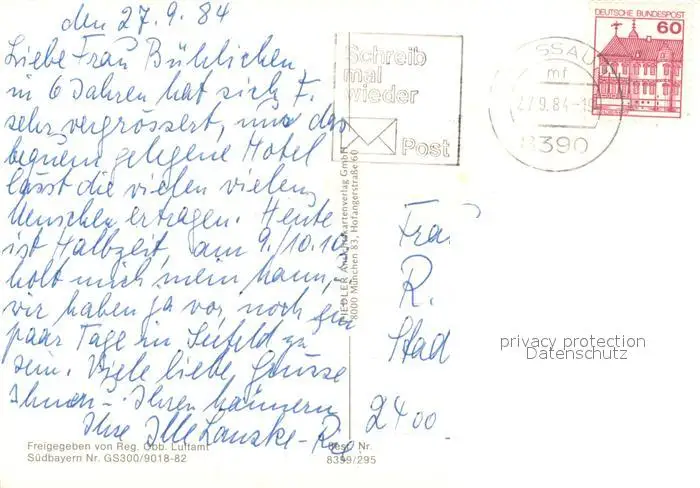 den 27.9.84
Liebe Frau
in 6 Jahren hat sich F.
sehr vergrössert, nur das
bequem gelegene Hotel
lässt die vielen vielen
Menschen ertragen. Heute
ist Halbzeit, am 9./10.10
holt mich mein Mann,
wir haben ja vor, noch ein
paar Tage in Seefeld zu
sein. Viele liebe Grüsse
Ihnen - Ihren Männern
Ihre
Freigegeben von Reg. Obb. Luftamt
Südbayern Nr. GS300/9018-82
Best. Nr.
8399/295
Ansichtskartenverlag GmbH
8000 München 83, Hofangerstraße 60
Schreib
mal
wieder
Post
SSAU
mf
27.9.84-18
8390
DEUTSCHE BUNDESPOST
60
Frau
R.
Stad
2400
privacy protection
Datenschutz